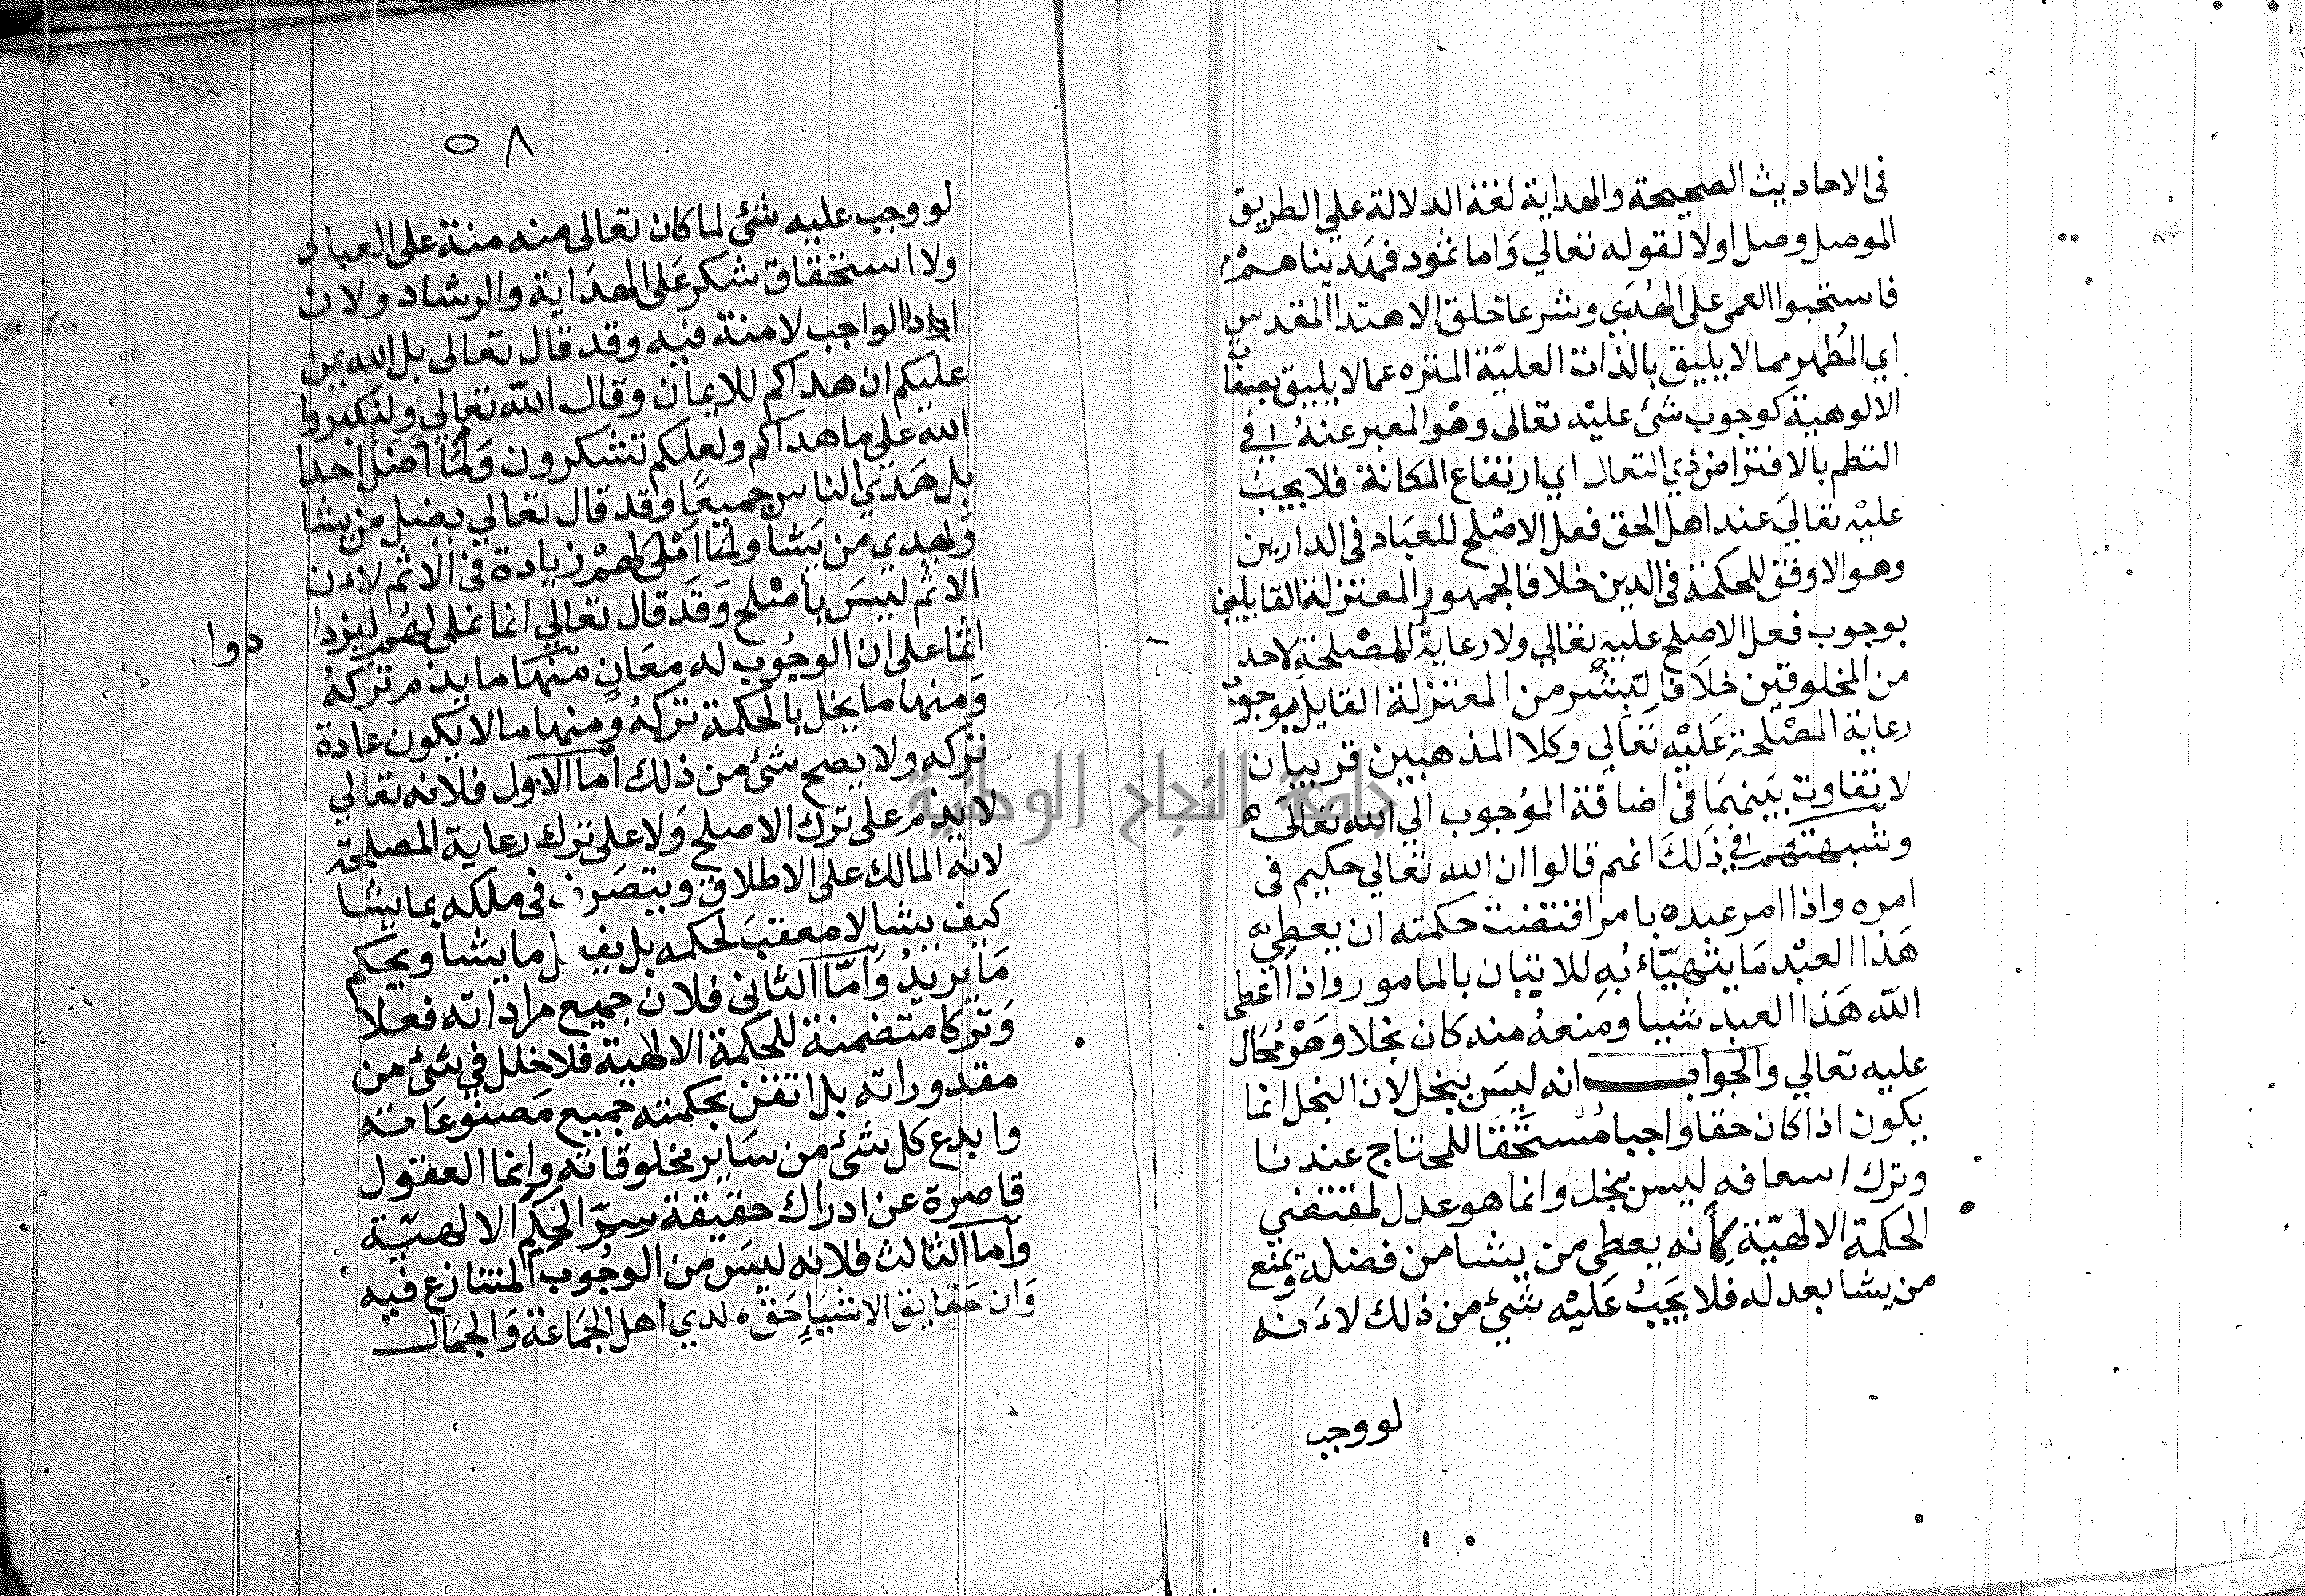 في الاحاديث الصحيحة والهداية لغة الدلالة علي الطريق
الموصل وصل اولا لقوله تعالي وَاما ثمود فهَديناهمْ
فاستحبوا العمى على الهُدَي وشرعا خلق الاهتدا المقدس
اي المُطهر مما لا يليق بالذات العليّة المنزه عما لا يليق بصفات
الالوهية كوجوب شئ عليْه تعالى وهْو المعبر عنهُ في
النظم بالافتراض ذي التعال اي ارتفاع المكانة فلا يجبُ
عليْه تعاليَ عند اهل الحق فعل الاصْلح للعبَاد في الدارين
وهو الاوفق للحكمة في الدين خلافا لجمهور المعتزلة القايلين
بوجوب فعل الاصلح عليه تعالي ولا رعاية المصْلحة لاحد
من المخلوقين خلَافا لبِشْر من المعتزلة القايل بوجوب
رعاية المصْلحة عَليْه تعَالي وكلا المذهبين قريبان
لا تفاوت بَينهمَا في اضافة الوُجوب الي الله تعَالىَ
وشبهتهم في ذلكَ انهم قالوا ان الله تعالي حكيم في
امره واذا امر عبده بامر اقتضت حكمته ان يعطيَ
هَذا العبْد مَا يتهيّاء بُهِ للاتيان بالمامور واذا اعطى
الله هَذا العبد شييا ومنعهُ منه كان بخلا وهْو مُحَال
عليه تعالي والجواب انه ليسَ ببخل لان البخل انما
يكون اذا كان حقا واجبا مُسْتحَقا للمحتاج عندنا
وترك اسعافه ليس ببخل وانما هو عدل لمقتضي
الحكمة الالهيّة كانه يعطى من يشا من فضله ويمنع
من يشا بعدله فلا يجَبُ عَليْه شئ من ذلك لاَنه
لو وجب
٥٨
لو وجب عليه شئ لما كان تعالى منه منة على العباد
ولا استحقاق شكر عَلى الهدَاية والرشاد ولان
اداا الواجب لا منة فيه وقد قال تعالى بل الله يمن
عليكم ان هداكم للايمان وقال الله تعالي ولتكبروا
الله على ما هداكم ولعلكم تشكرون وَلمَا أضَل احدا
بل هَدَي الناس جميعًا وقد قال تعالي يضل من يشا
وَيهدي من يَشا ولما امْلى لهمْ زيادة في الاثم لاءن
الاثم ليسَ باصْلح وَقَد قال تعالي انما نملى لهُم ليزدا
دوا
اثما على ان الوجُوب له معَانٍ منهَا ما يذم تركهُ
وَمنها ما يخل بالحكمة تركهُ وَمنها ما لا يكون عادة
تركه ولا يصح شئ من ذلك اما الاول فلانه تعالي
لا يذم على ترك الاصلح وَلا على ترك رعاية المصلحة
لانهُ المالك على الاطلاق ويتصَرف في ملكه بما يشا
كيف يشا لا معقبَ لحكمه بل يفـ ل ما يشا ويحكم
مَا يريدُ وَأمّا الثاني فلان جميع مراداته فعلا
وَتركا متضمنة للحكمة الالهية فلا خلل في شئ من
مقدوراته بل اتقن بحكمته جميع مَصنوعَاته
وابدع كل شئ من سَاير مخلوقاته وانما العقول
قاصرة عن ادراك حقيقة سِرّ الحكم الالهيّة
واما الثالث فلانه ليسَ من الوجُوب المتنازع فيه
وَان حَقايق الاشيَا حَق لدي اهل الجَماعَة وَالجمَال
جامعة النجاح الوطنية